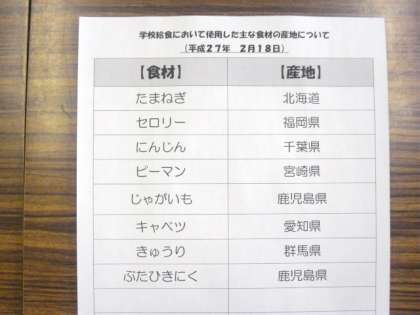 学校給食において使用した主な食材の産地について
（平成２７年　２月１８日）
【食材】　【産地】
たまねぎ　北海道
セロリー　福岡県
にんじん　千葉県
ピーマン　宮崎県
じゃがいも　鹿児島県
キャベツ　愛知県
きゅうり　群馬県
ぶたひきにく　鹿児島県